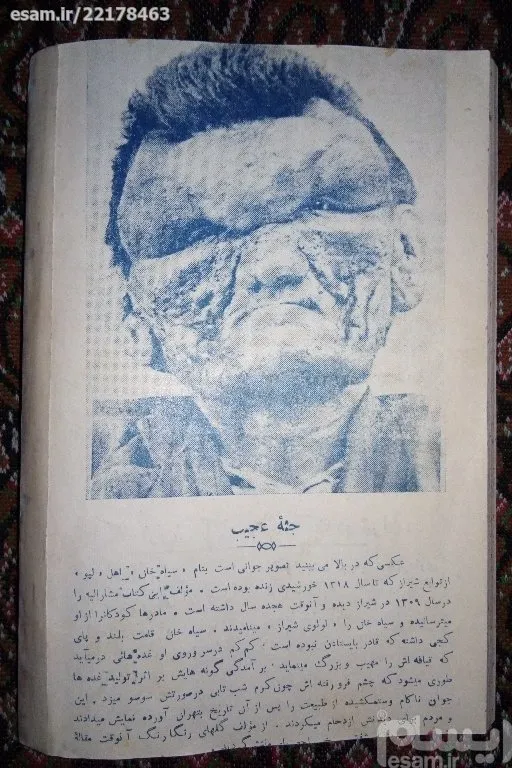 esam.ir/22178463
جثهٔ عجیب
عکسی که در بالا می بینید تصویر جوانی است بنام « سیاه خان » اهل « لپو »
از توابع شیراز که تا سال ۱۳۱۸ خورشیدی زنده بوده است . مؤلف این کتاب مشارالیه را
در سال ۱۳۰۹ در شیراز دیده و آنوقت هجده سال داشته است . مادرها کودکانرا از او
میترسانیده و سیاه خان را « لولوی شیراز » مینامیدند . سیاه خان قامت بلند و پای
کجی داشته که قادر بایستادن نبوده است . کم کم در سر و روی او غده هائی در میآید
که قیافه اش را مهیب و بزرگ مینماید . بر آمدگی گونه هایش بر اثر تولید غده ها
طوری میشود که چشم فرو رفته اش چون کرم شب تابی در صورتش سوسو میزد . این
جوان ناکام و ستمکشیده از طبیعت را پس از آن تاریخ بتهران آورده نمایش میدادند
و مردم ازدحام میکردند . از مؤلف کفهای رنگارنگ آنوقت مقالهٔ
ایسام
esam.ir